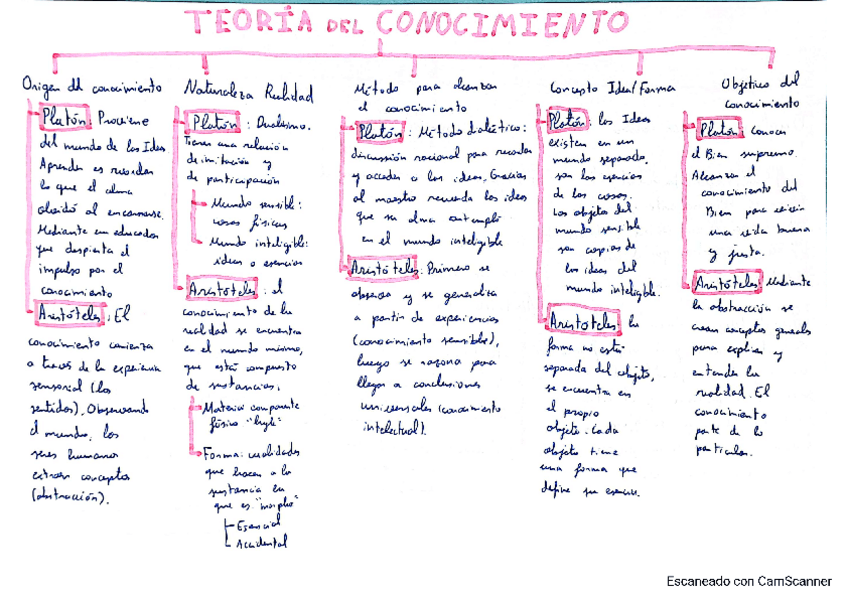 TEORÍA DEL CONOCIMIENTO
Origen del conocimiento
Platón: Proviene
del mundo de las Ideas
Aprender es recordar
lo que el alma
olvidó al encarnarse.
Mediante un educador
que despierta el
impulso por el
conocimiento
Aristóteles: El
conocimiento comienza
a través de la experiencia
sensorial (los
sentidos). Observando
el mundo, los
seres humanos
extraen conceptos
(abstracción).
Naturaleza Realidad
Platón: Dualismo.
Tienen una relación
de imitación y
de participación
Mundo sensible:
cosas físicas
Mundo inteligible:
ideas o esencias
Aristóteles: el
conocimiento de la
realidad se encuentra
en el mundo mismo,
que está compuesto
de sustancias.
Materia: componente
físico "hyle"
Forma: cualidades
que hacen a la
sustancia lo
que es. "morphe"
Esencial
Accidental
Método para alcanzar
el conocimiento
Platón: Método dialéctico:
discusión racional para recordar
y acceder a las ideas. Gracias
al maestro recuerda las ideas
que su alma contempló
en el mundo inteligible
Aristóteles: Primero se
observa y se generaliza
a partir de experiencias
(conocimiento sensible),
luego se razona para
llegar a conclusiones
universales (conocimiento
intelectual).
Concepto Idea/Forma
Platón: las Ideas
existen en un
mundo separado.
son las esencias
de las cosas.
Los objetos del
mundo sensible
son copias de
las ideas del
mundo inteligible.
Aristóteles: la
forma no está
separada del objeto,
se encuentra en
el propio
objeto. Cada
objeto tiene
una forma que
define su esencia.
Objetivo del
conocimiento
Platón: conocer
el Bien supremo.
Alcanzar el
conocimiento del
Bien para vivir
una vida buena
y justa.
Aristóteles: Mediante
la abstracción se
crean conceptos generales
para explicar y
entender la
realidad. El
conocimiento
parte de lo
particular.
Escaneado con CamScanner